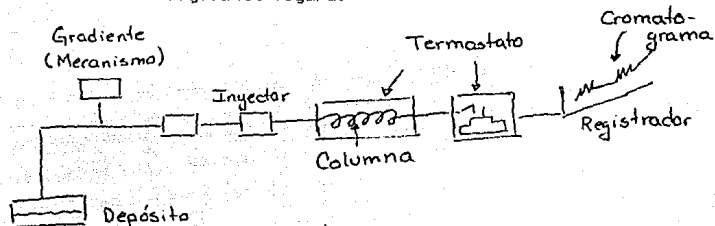 Gradiente
(Mecanismo)
Inyector
Termostato
Cromato-
grama
Columna
Registrador
Depósito